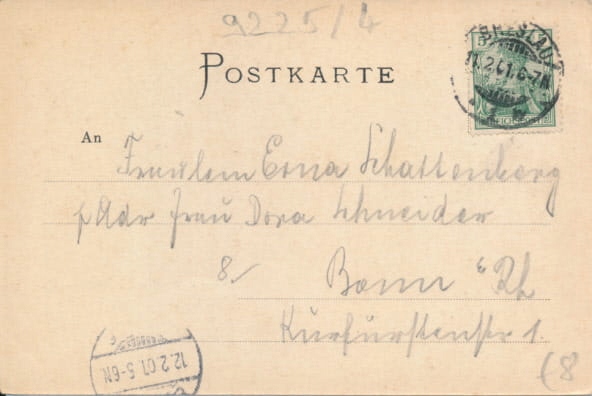 9225/4
POSTKARTE
BRESLAU
11.2.01.6-7N
REICHSPOST
An
Fräulein Erna Schattenberg
p Adr Frau Dora Schneider
8/ Bonn a/Rh
Kurfürstenstr 1.
12.2.01.5-6N
(8